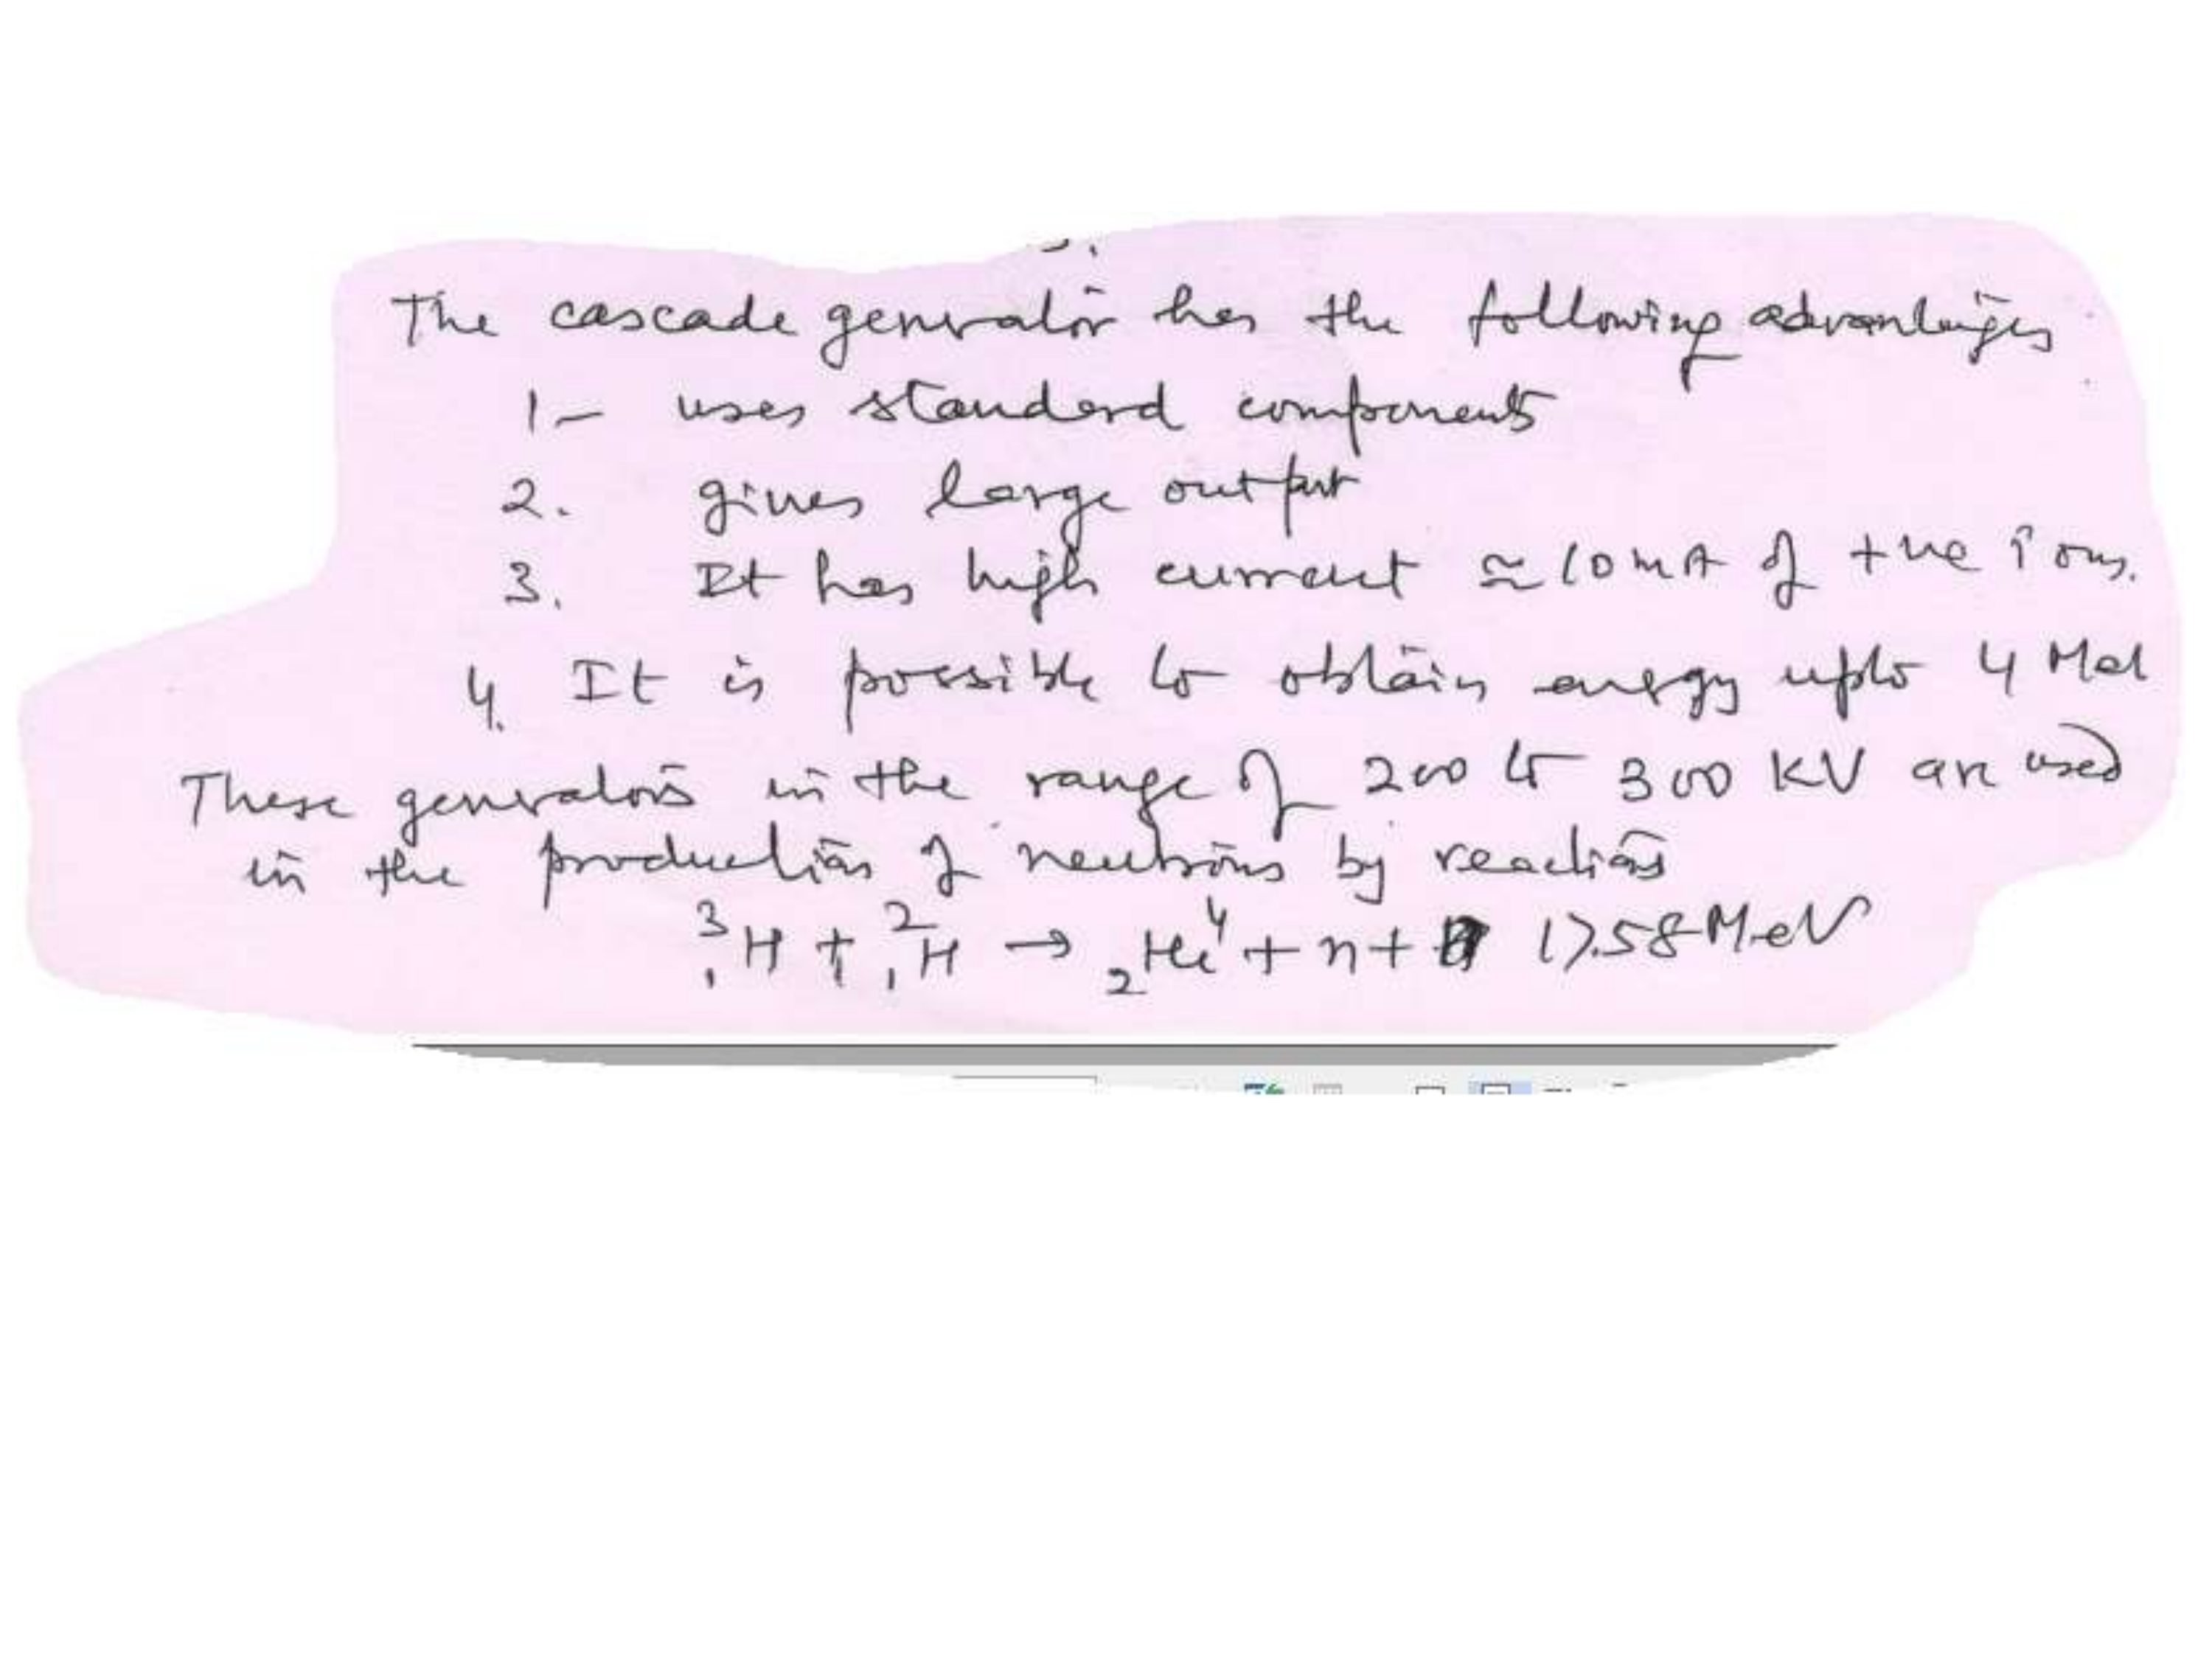 The cascade generator has the following advantages
1- uses standard components
2. gives large output
3. It has high current ≃ 10 mA of +ve ions.
4. It is possible to obtain energy upto 4 Mev
These generators in the range of 200 to 300 KV are used
in the production of neutrons by reactions
³₁H + ²₁H → ₂He⁴ + n + 17.58 MeV